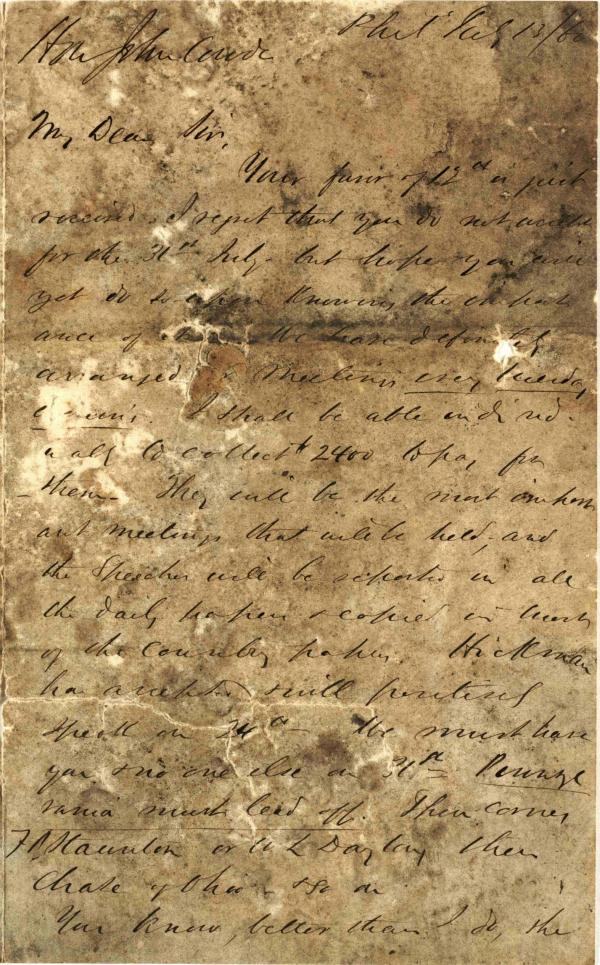 Phil July 13/60
Hon John Covode
My Dear Sir,
Your favor of 12th is just
received. I regret that you do not accept
for the 31st July - but hope you will
yet do so upon knowing the import
ance of We have definitely
arranged meetings every Tuesday
evening. I shall be able individ-
ually to collect $2400 to pay for
them - They will be the most import
ant meetings that will be held, and
the Speeches will be reported in all
the daily papers & copied in most
of the Country papers. Hickman
has accepted & will positively
speak on 24th - We must have
you & no one else on 31st = Pennsyl
vania must lead off. Then comes
or W L Dayton, then
Chase of Ohio - & so on
You know, better than I do, the